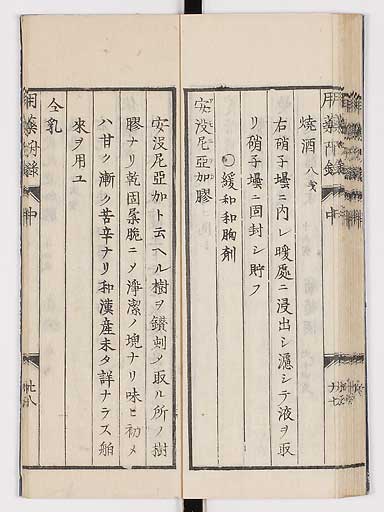 焼酒 八戔
右硝子壜ニ内レ暖處ニ浸出シ濾シテ液ヲ取
リ硝子壜ニ固封シ貯フ
緩和和胸劑
安没尼亞加膠
安没尼亞加ト云ヘル樹ヲ鑽刺メ取ル所ノ樹
膠ナリ乾固柔脆ニメ淨潔ノ塊ナリ味ヒ初メ
ハ甘ク漸ク苦辛ナリ和漢産未タ詳ナラス舶
來ヲ用ユ
仝乳
用藥附録 中 廿八